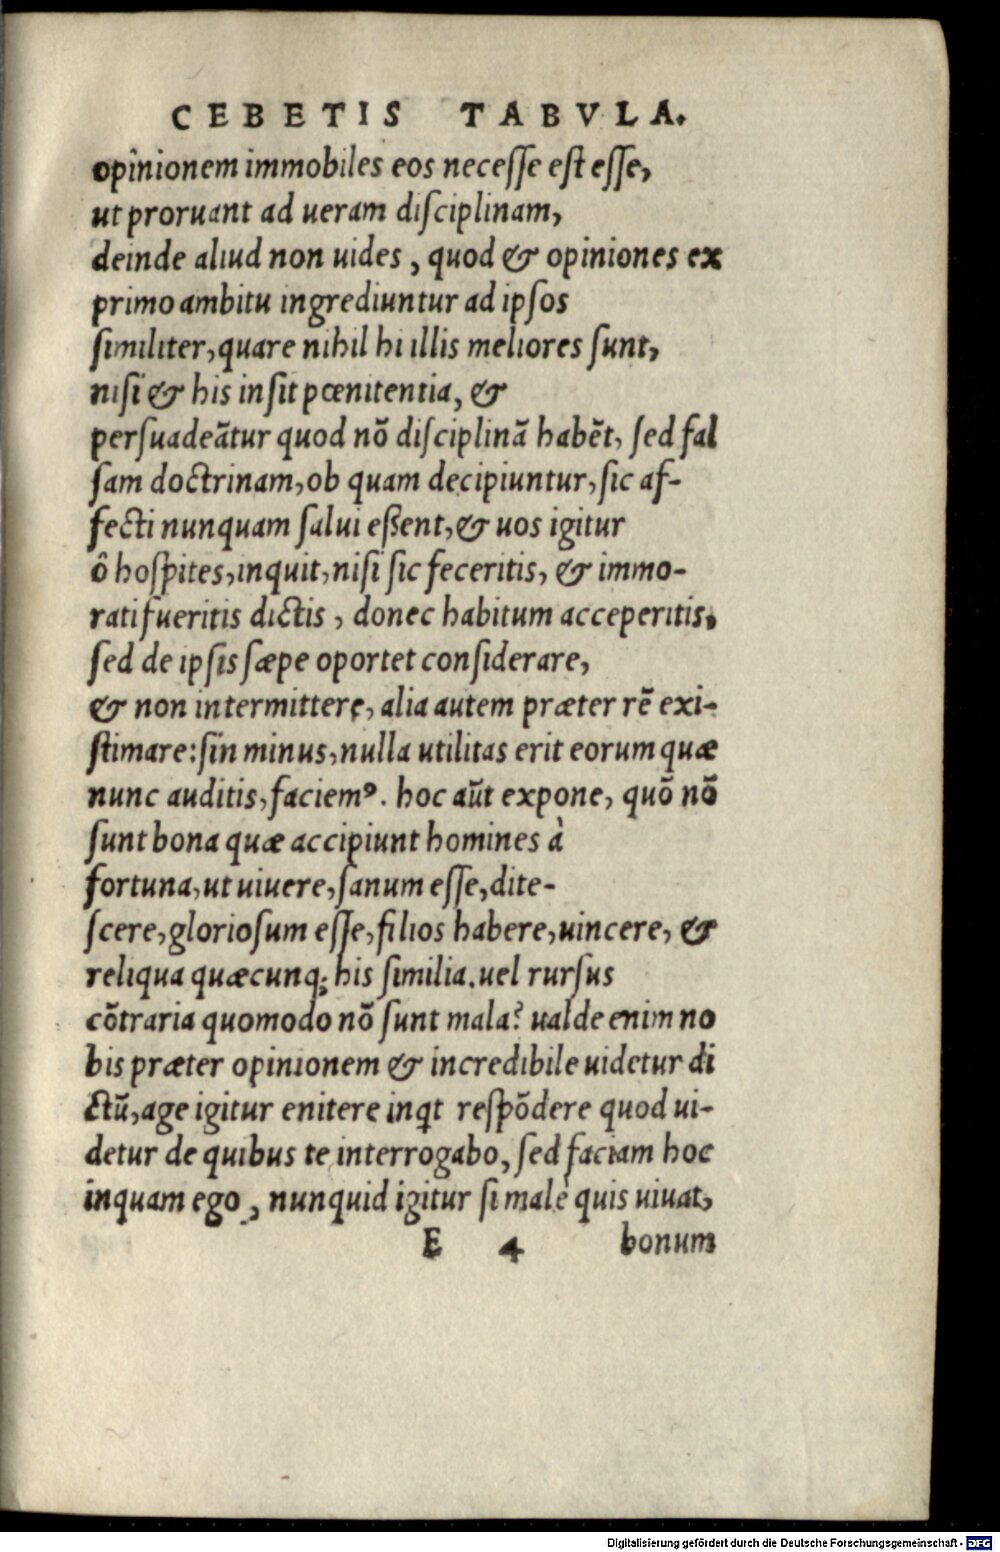 CEBETIS TABVLA.
opinionem immobiles eos necesse est esse,
ut proruant ad ueram disciplinam,
deinde aliud non uides, quod & opiniones ex
primo ambitu ingrediuntur ad ipsos
similiter, quare nihil hi illis meliores sunt,
nisi & his insit pœnitentia, &
persuadeãtur quod nõ disciplinã habẽt, sed fal
sam doctrinam, ob quam decipiuntur, sic af-
fecti nunquam salui eßent, & uos igitur
ô hospites, inquit, nisi sic feceritis, & immo-
rati fueritis dictis, donec habitum acceperitis,
sed de ipsis sæpe oportet considerare,
& non intermittere, alia autem præter rẽ exi-
stimare: sin minus, nulla utilitas erit eorum quæ
nunc auditis, faciemꝰ. hoc aũt expone, quõ nõ
sunt bona quæ accipiunt homines à
fortuna, ut uiuere, sanum esse, dite-
scere, gloriosum esse, filios habere, uincere, &
reliqua quæcunq; his similia. uel rursus
cõtraria quomodo nõ sunt mala? ualde enim no
bis præter opinionem & incredibile uidetur di
ctũ, age igitur enitere inqt respõdere quod ui-
detur de quibus te interrogabo, sed faciam hoc
inquam ego, nunquid igitur si malè quis uiuat,
E 4 bonum
Digitalisierung gefördert durch die Deutsche Forschungsgemeinschaft - DFG